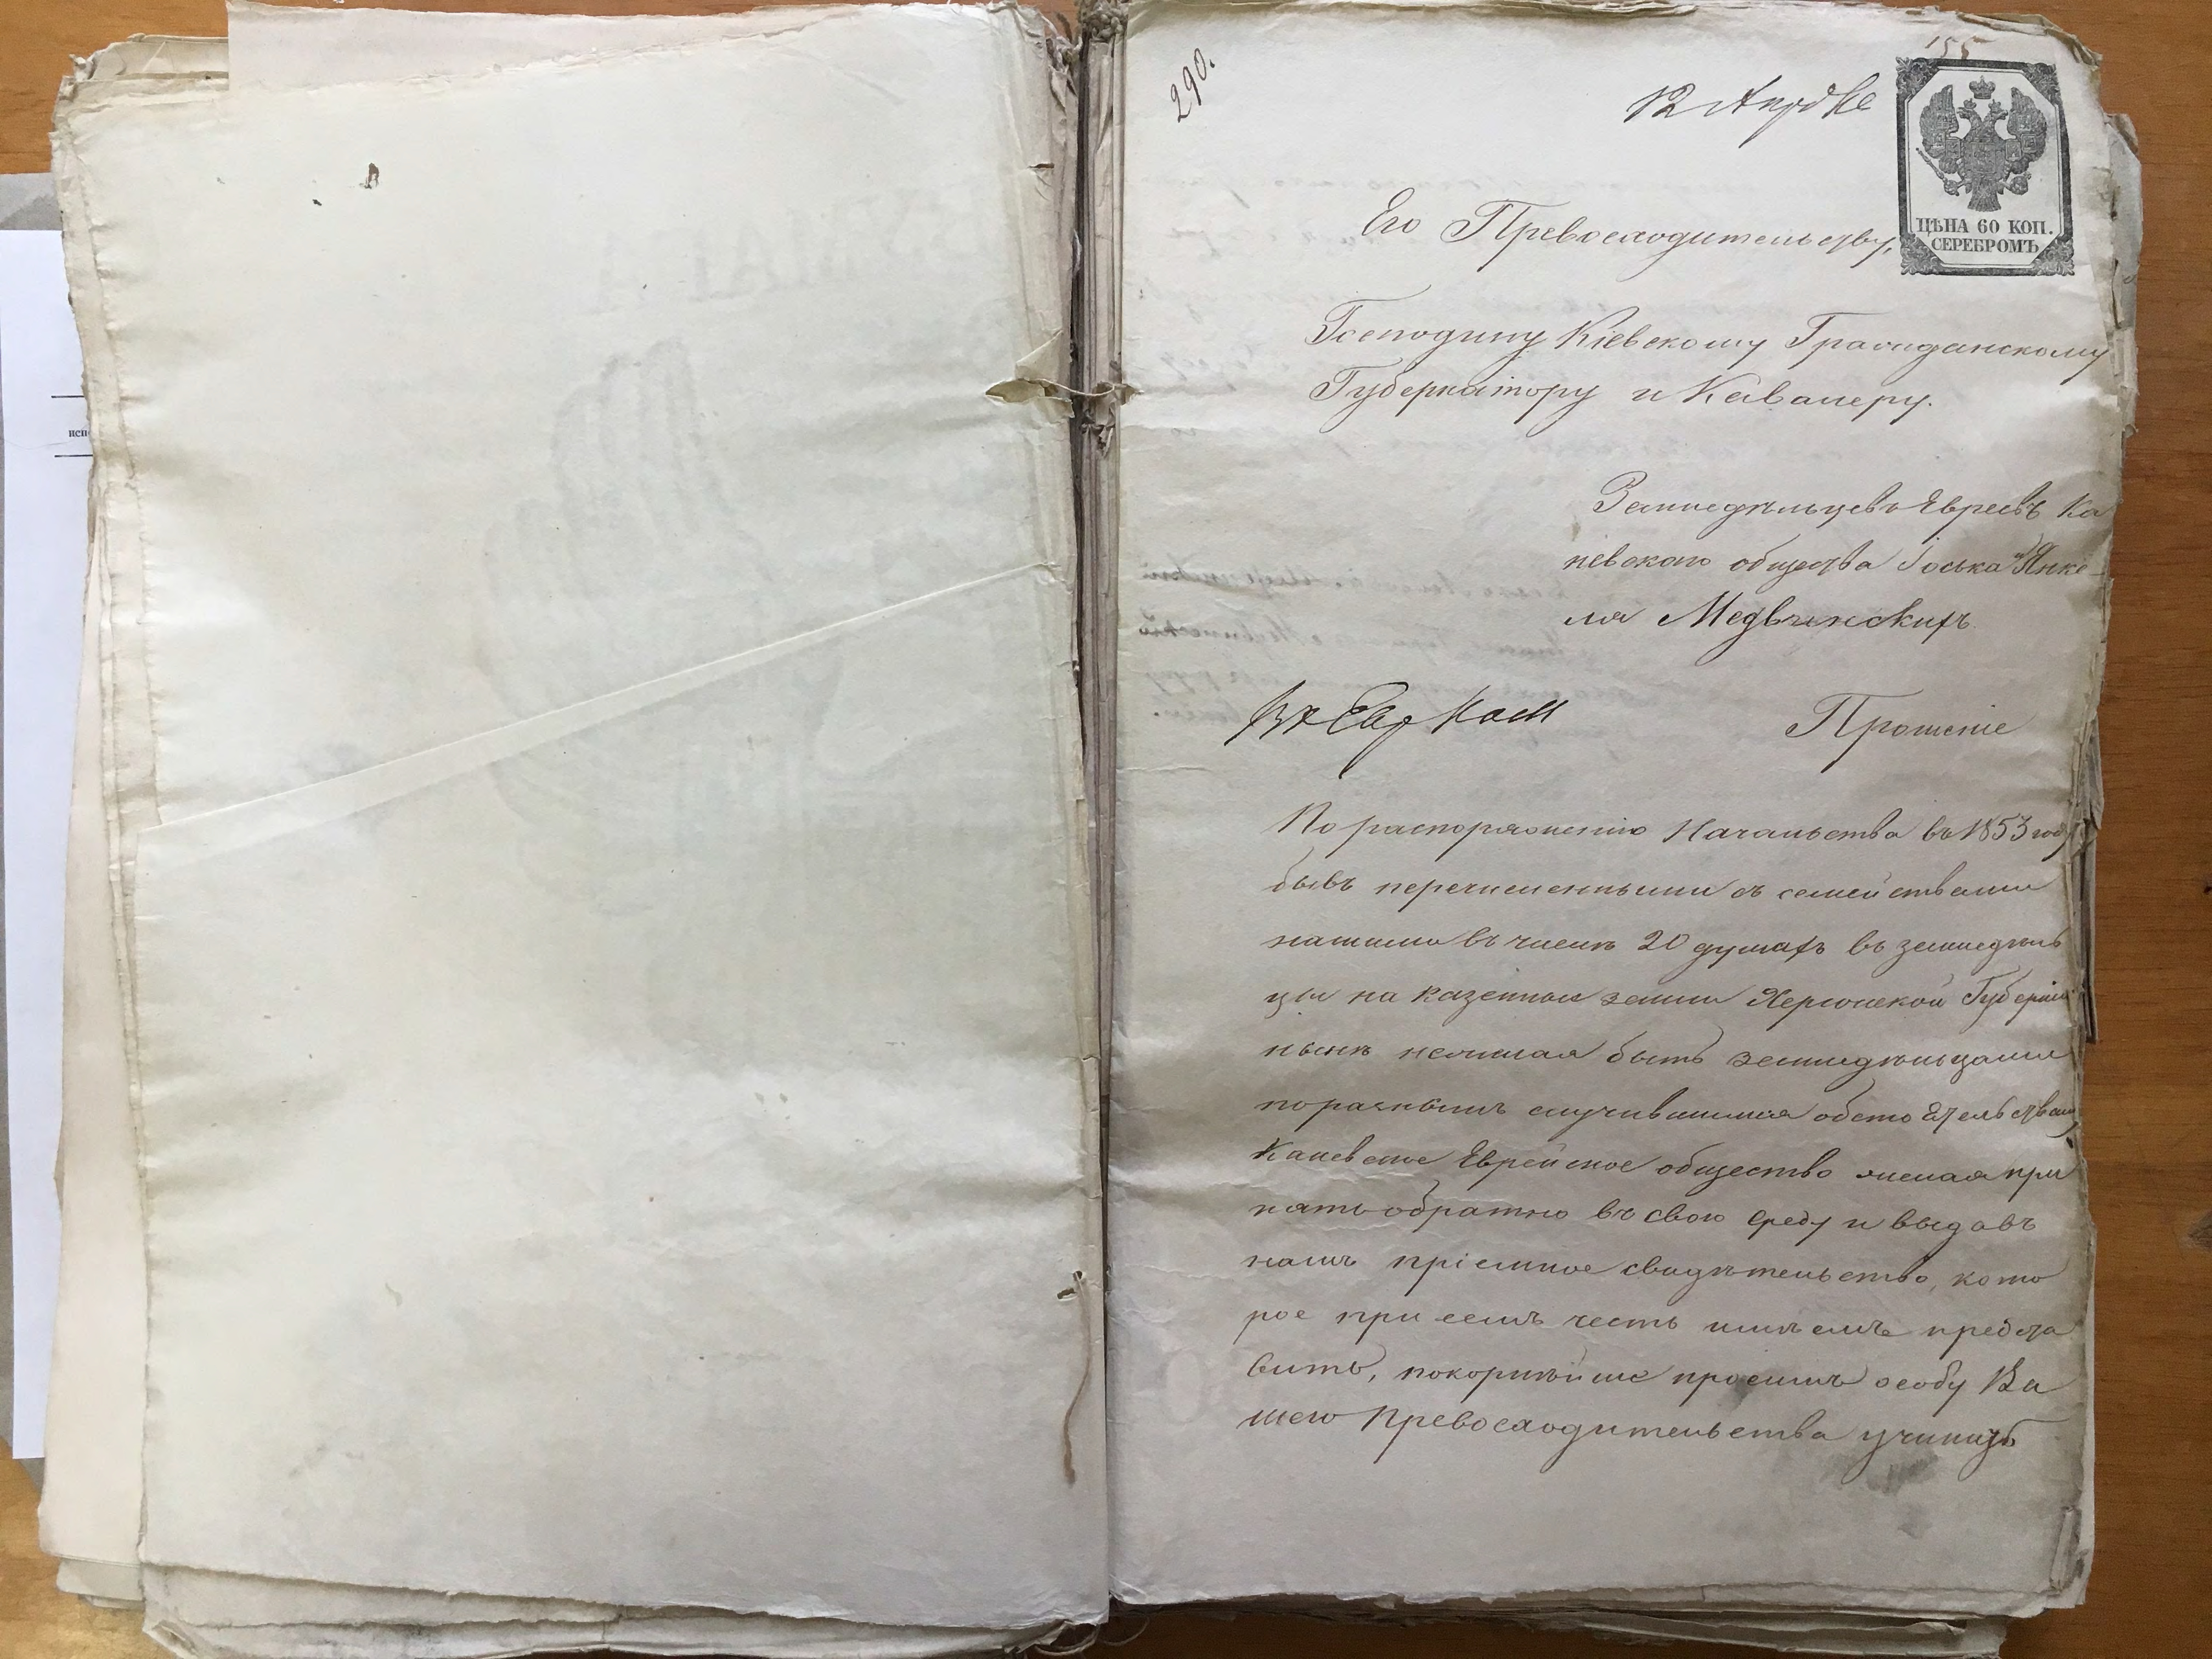 290.
155
12 Апрѣля
ЦѢНА 60 КОП.
СЕРЕБРОМЪ
Его Превосходительству,
Господину Кіевскому Гражданскому
Губернатору и Кавалеру.
Земледѣльцевъ Евреевъ Ка
невскаго общества Іоська и Янке-
ля Медвинскихъ.
Прошеніе
По распоряженію Начальства въ 1853 году
бывъ перечисленными съ семействами
нашими въ числѣ 20 душахъ въ земледѣль
цы на казенные земли Херсонской Губерніи
нынѣ нежелая быть земледѣльцами
поразнымъ случившимся обстоятельствамъ
Каневское Еврейское общество желая при
нять обратно въ свою среду и выдавъ
намъ пріемное свидѣтельство, кото
рое при семъ честь имѣемъ предста
вить, покорнѣйше просимъ особу Ва
шего Превосходительства учинить